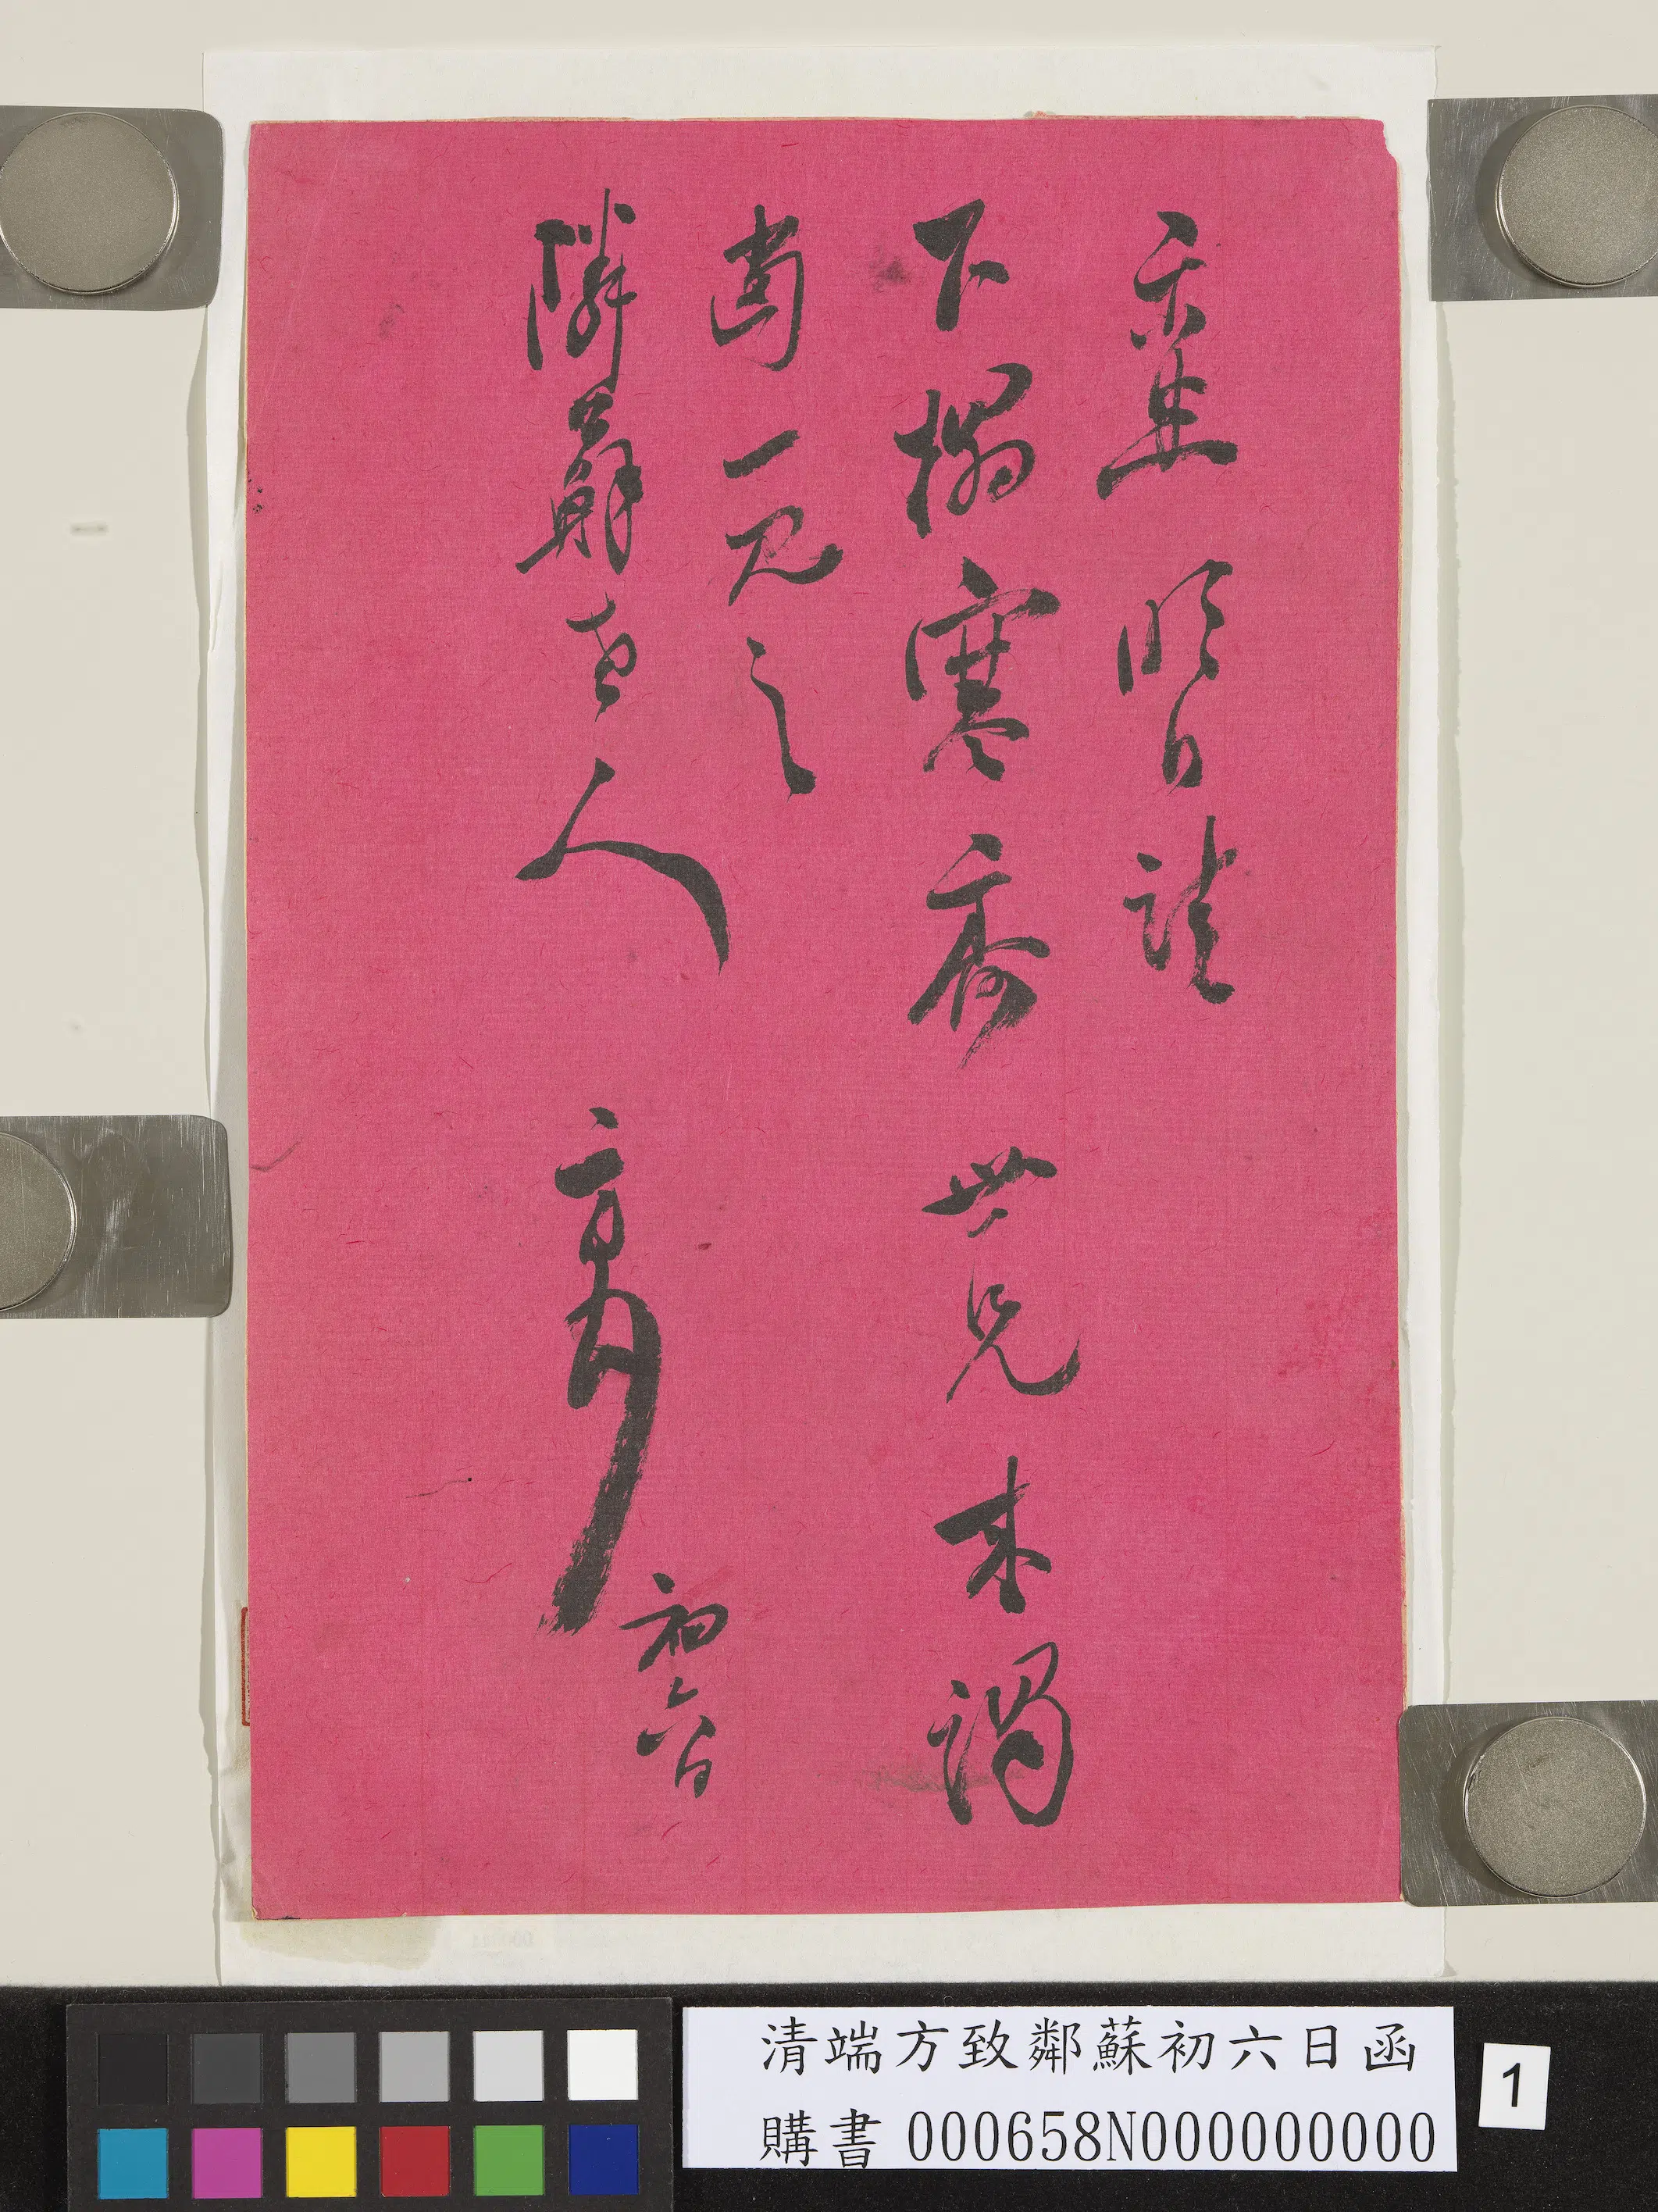 示悉 明日請
下榻寒齋 世兄來謁
當一見之
隣蘇老人 初六日
清端方致鄰蘇初六日函
購書 000658N000000000
1